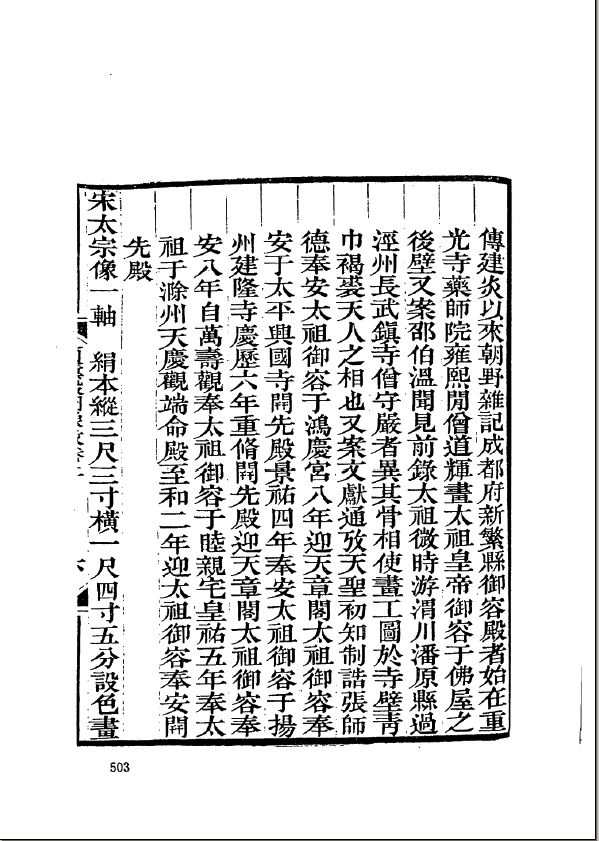 傳建炎以來朝野雜記成都府新繁縣御容殿者始在重
光寺藥師院雍熙閒僧道輝畫太祖皇帝御容于佛屋之
後壁又案邵伯溫聞見前錄太祖微時游渭川潘原縣過
涇州長武鎮寺僧守嚴者異其骨相使畫工圖於寺壁靑
巾褐裘天人之相也又案文獻通攷天聖初知制誥張師
德奉安太祖御容于鴻慶宮八年迎天章閣太祖御容奉
安于太平興國寺開先殿景祐四年奉安太祖御容于揚
州建隆寺慶歷六年重脩開先殿迎天章閣太祖御容奉
安八年自萬壽觀奉太祖御容于睦親宅皇祐五年奉太
祖于滁州天慶觀端命殿至和二年迎太祖御容奉安開
先殿
宋太宗像一軸　絹本縱三尺三寸橫一尺四寸五分設色畫
503